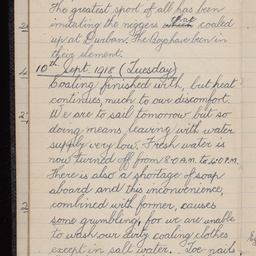 The greatest sport of all has been
imitating the niggers that coaled
up at Durban. The boys have been in
their element.
10th Sept. 1918 (Tuesday)
Coaling finished with, but heat
continues, much to our discomfort.
We are to sail tomorrow but so
doing means, leaving with water
supply very low. Fresh water is
now turned off from 8.0 A.M. to 4.0 P.M.
There is also a shortage of soap
aboard and this inconvenience,
combined with former, causes
some grumbling, for we are unable
to wash our dirty coaling clothes
except in salt water. Toe-nails